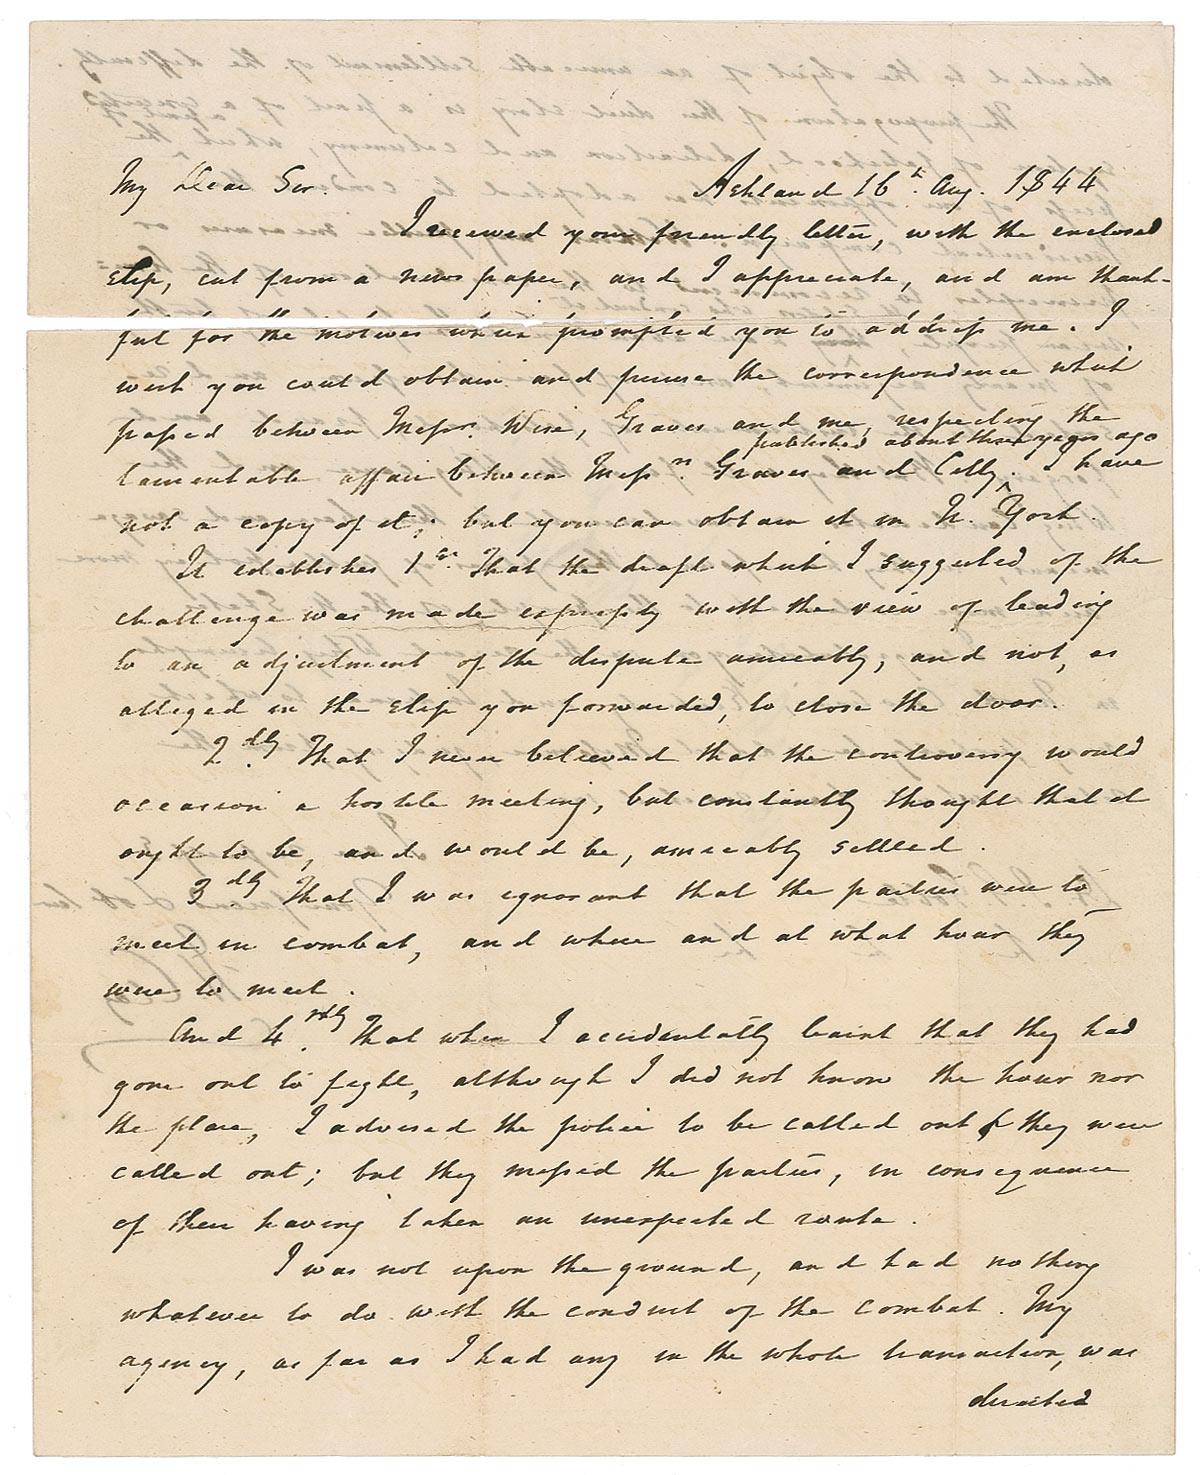 My Dear Sir. Ashland 16h. Aug. 1844
I received your friendly letter, with the enclosed
slip, cut from a news paper, and I appreciate, and am thank-
ful for the motives which prompted you to address me. I
wish you could obtain and peruse the correspondence which
passed between Messrs. Wise, Graves and me, respecting the
published about three years ago
lamentable affair between Messrs. Graves and Cilly ^. I have
not a copy of it; but you can obtain it in N. York.
It establishes 1st. That the draft which I suggested of the
challenge was made expressly with the view of leading
to an adjustment of the dispute amicably, and not, as
alleged in the slip you forwarded, to close the door.
2dly. That I never believed that the controversy would
occasion a hostile meeting, but constantly thought that it
ought to be, and would be, amicably settled.
3dly. That I was ignorant that the parties were to
meet in combat, and where and at what hour they
were to meet.
And 4thly. That when I accidentally learnt that they had
gone out to fight, although I did not know the hour nor
the place, I advised the police to be called out & they were
called out; but they missed the parties, in consequence
of their having taken an unexpected route.
I was not upon the ground, and had nothing
whatever to do with the conduct of the combat. My
agency, as far as I had any in the whole transaction, was
directed